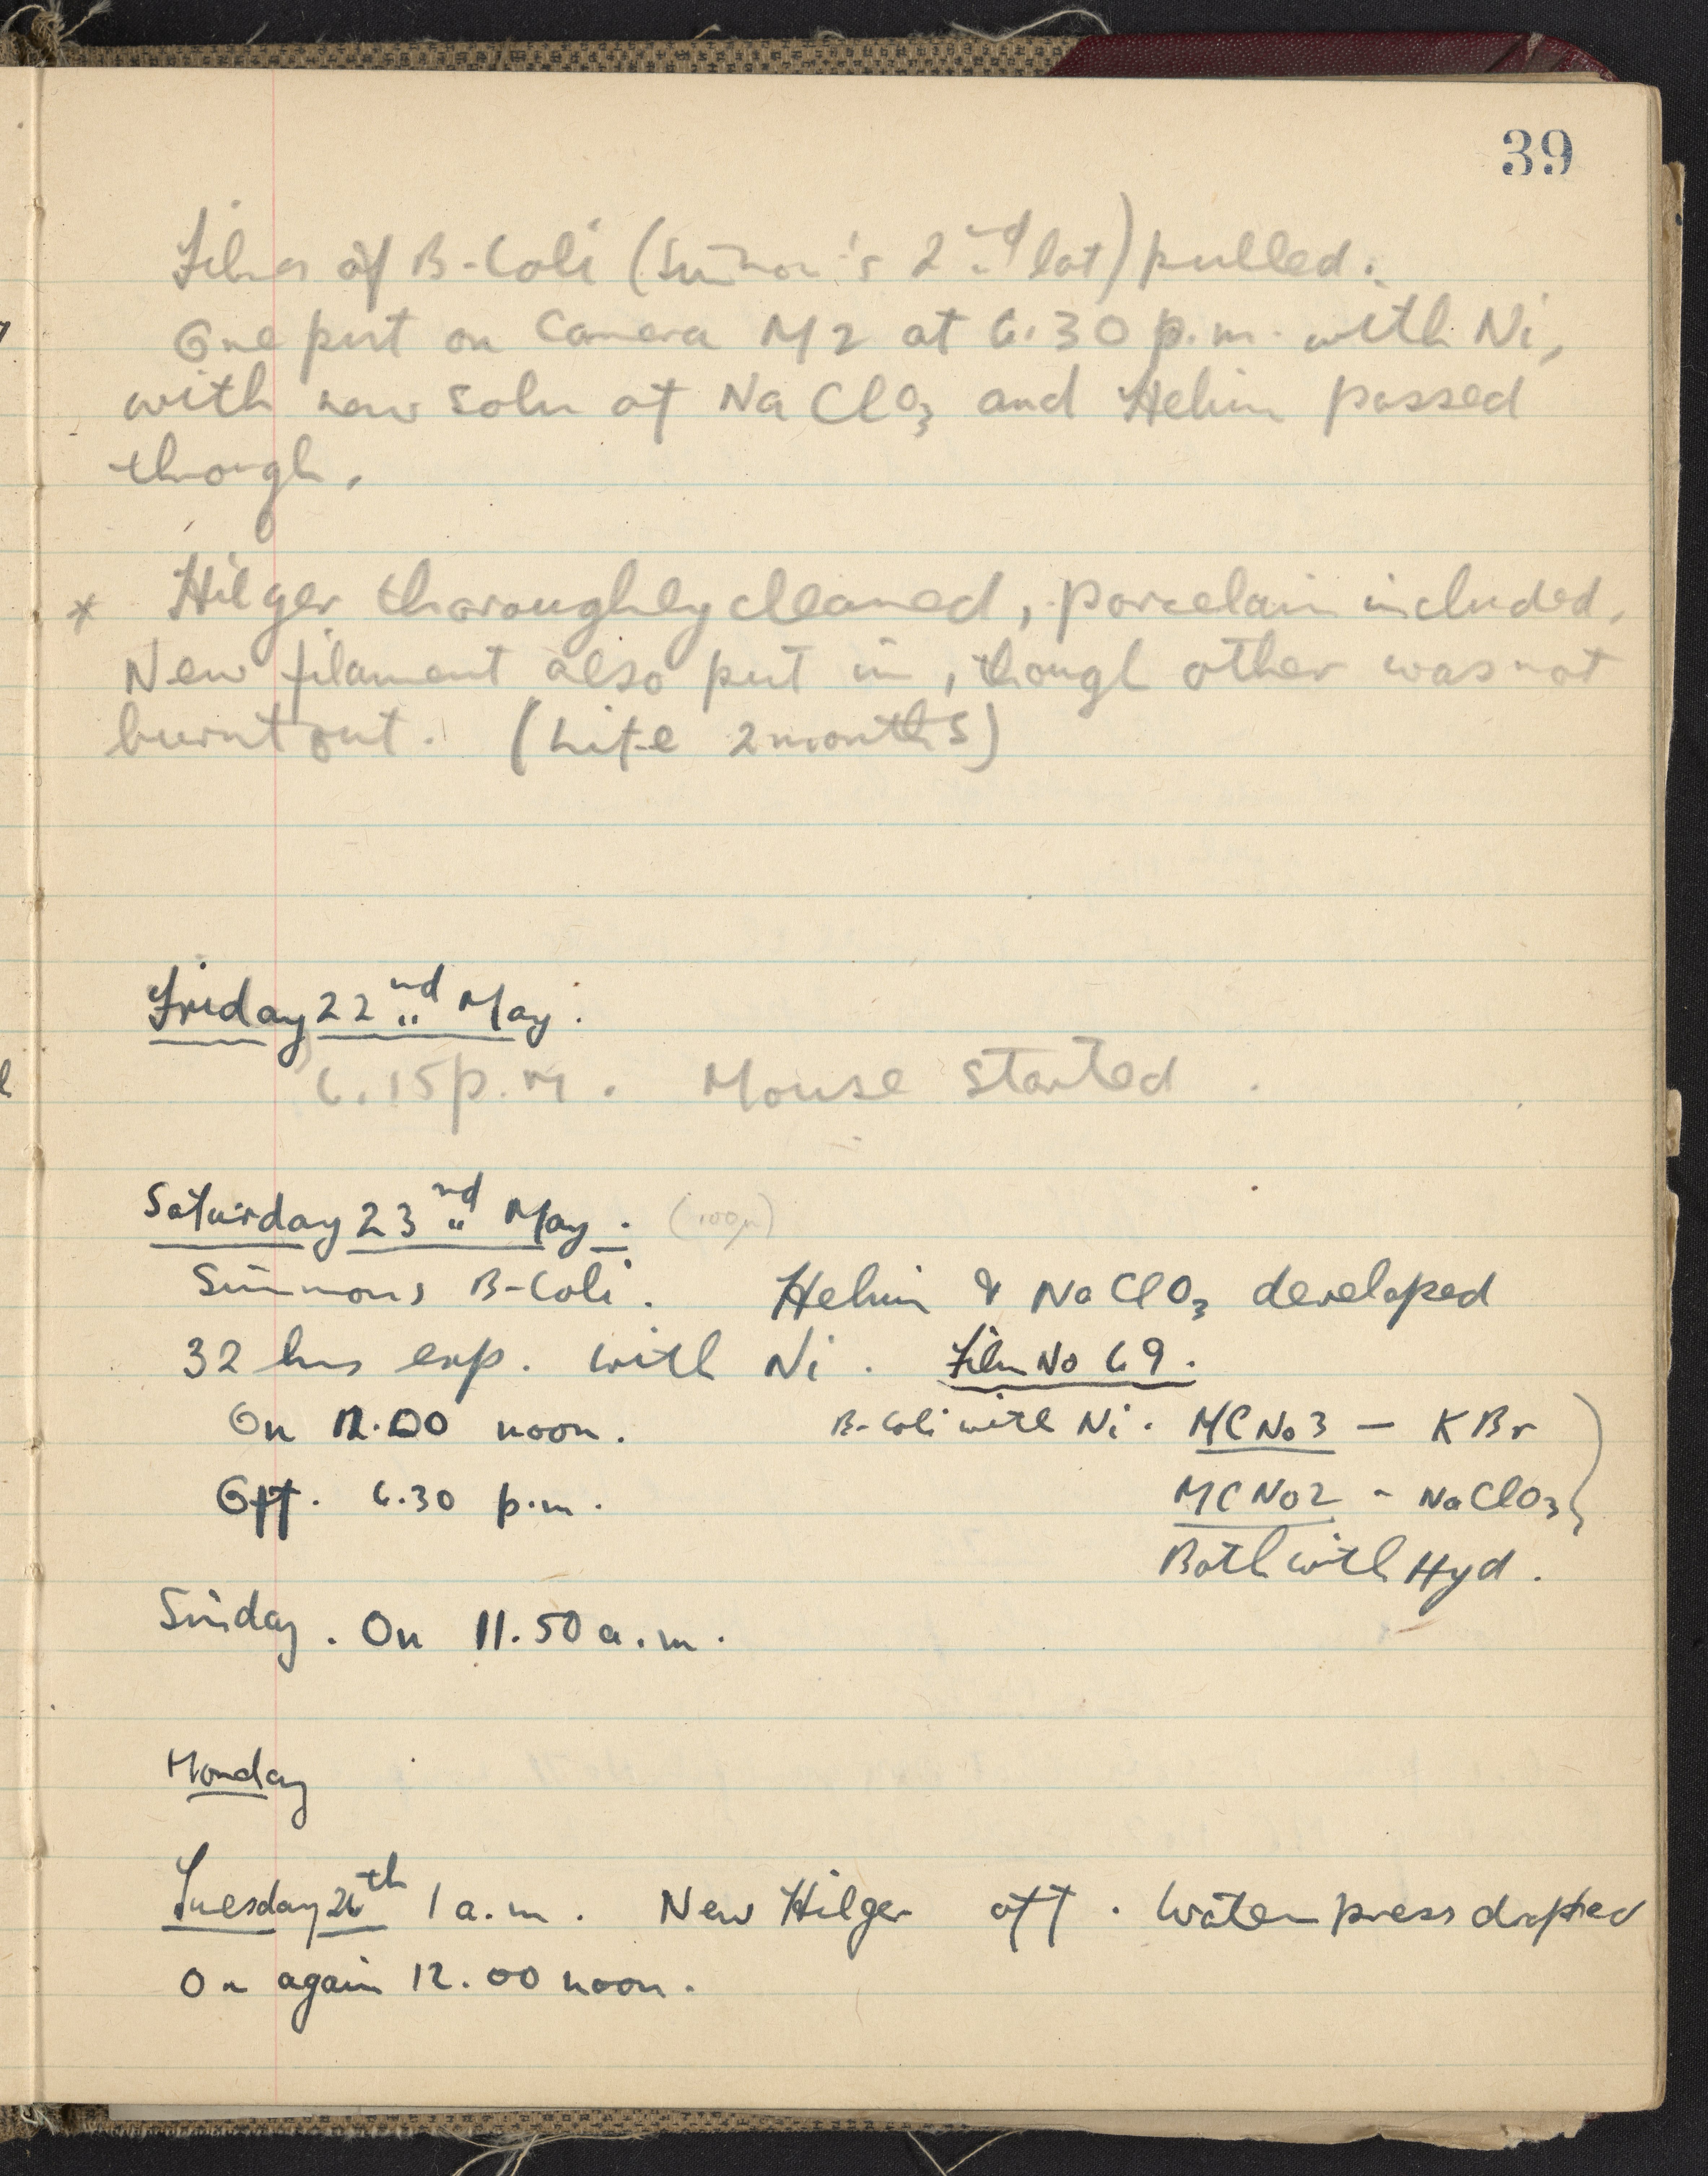 39
Films of B-Coli (Simmon's 2nd lot) pulled.
One put on Camera M2 at 6.30 p.m. with Ni,
with new soln of NaClO3 and Helium passed
through.
* Hilger thoroughly cleaned, porcelain included.
New filament also put in, though other was not
burnt out. (Life 2 months)
Friday 22nd May.
6.15 p.m. Mouse started.
Saturday 23rd May. (100μ)
Simmons B-Coli. Helium & NaClO3 developed
32 hrs exp. with Ni. Film No 69.
On 12.00 noon. B-Coli with Ni. MC No 3 — KBr
Off. 6.30 p.m. MC No 2 - NaClO3
Both with Hyd.
Sunday. On 11.50 a.m.
Monday
Tuesday 26th 1 a.m. New Hilger off. Water press dropped
On again 12.00 noon.